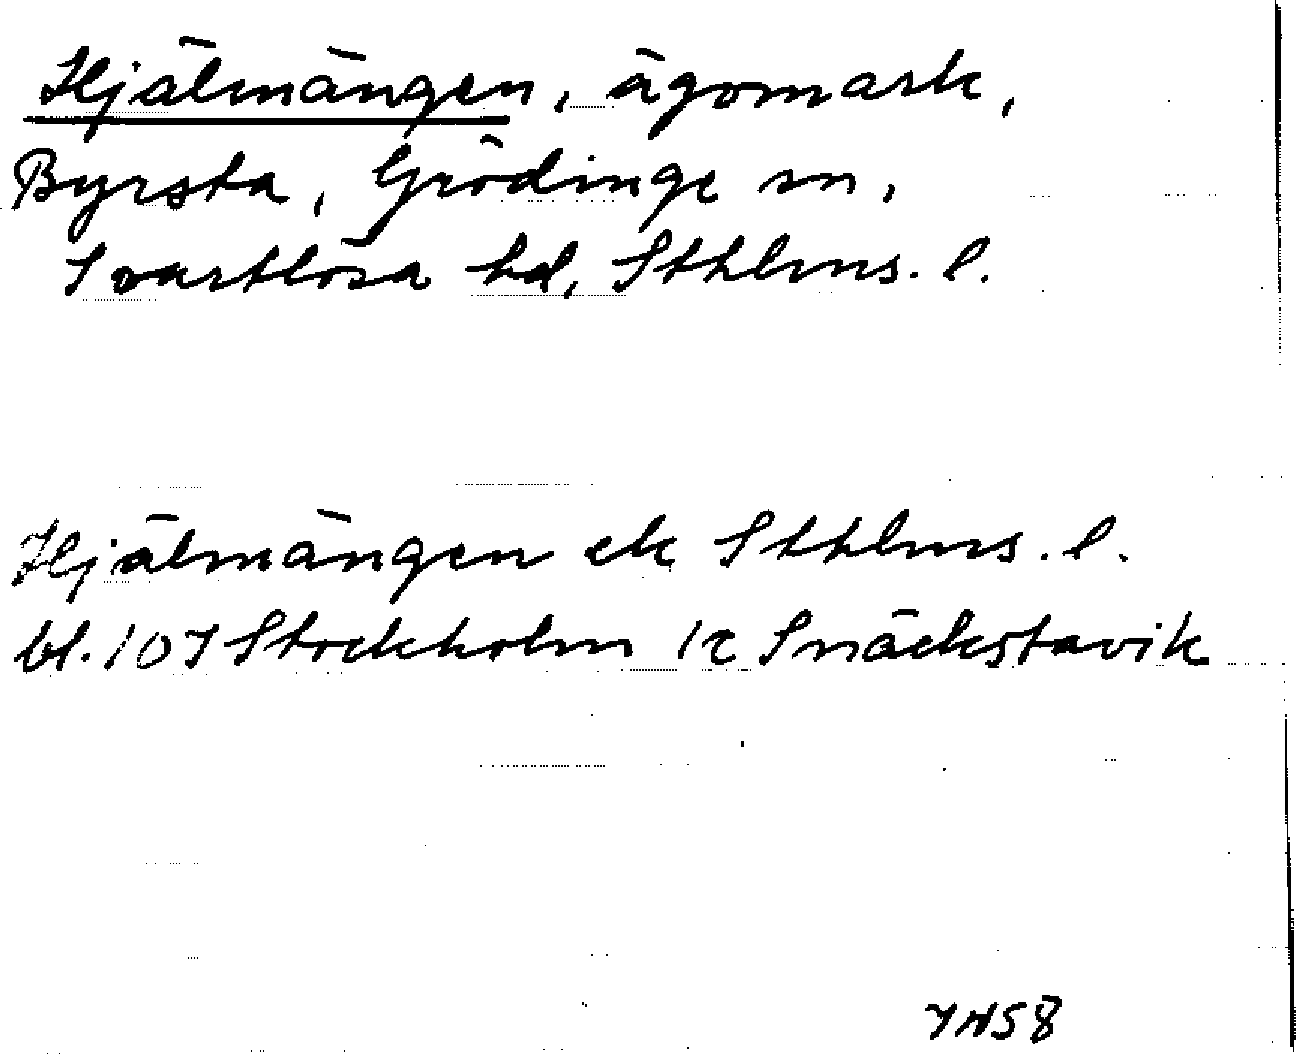 Hjälmängen, ägomark,
Byrsta, Grödinge sn,
Svartlösa hd, Sthlms. l.
Hjälmängen ek Sthlms. l.
bl. 10I Stockholm 1c Snäckstavik